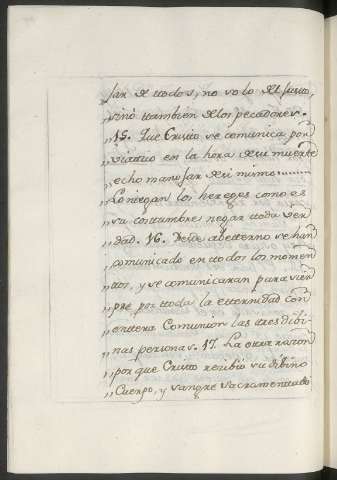 jar de ttodos, no solo del justo,
„ sino ttambien de los pecadores.
„ 15. Que Cristto se comunica por
„ viattico en la hora de su muertte
„ echo manjar de si mismo
„ Lo niegan los hereges como es
„ su costtumbre negar ttoda ver
„ dad. 16. Desde abetterno se han
„ comunicado en ttodos los momen
„ ttos, y se comunicaran para siem
„ pre por ttoda la etternidad con
„ enttera Comunion las ttres dibi-
„ nas personas. 17. La ottra razon
„ por que Cristto recibio su dibino
„ Cuerpo, y sangre Sacramenttado